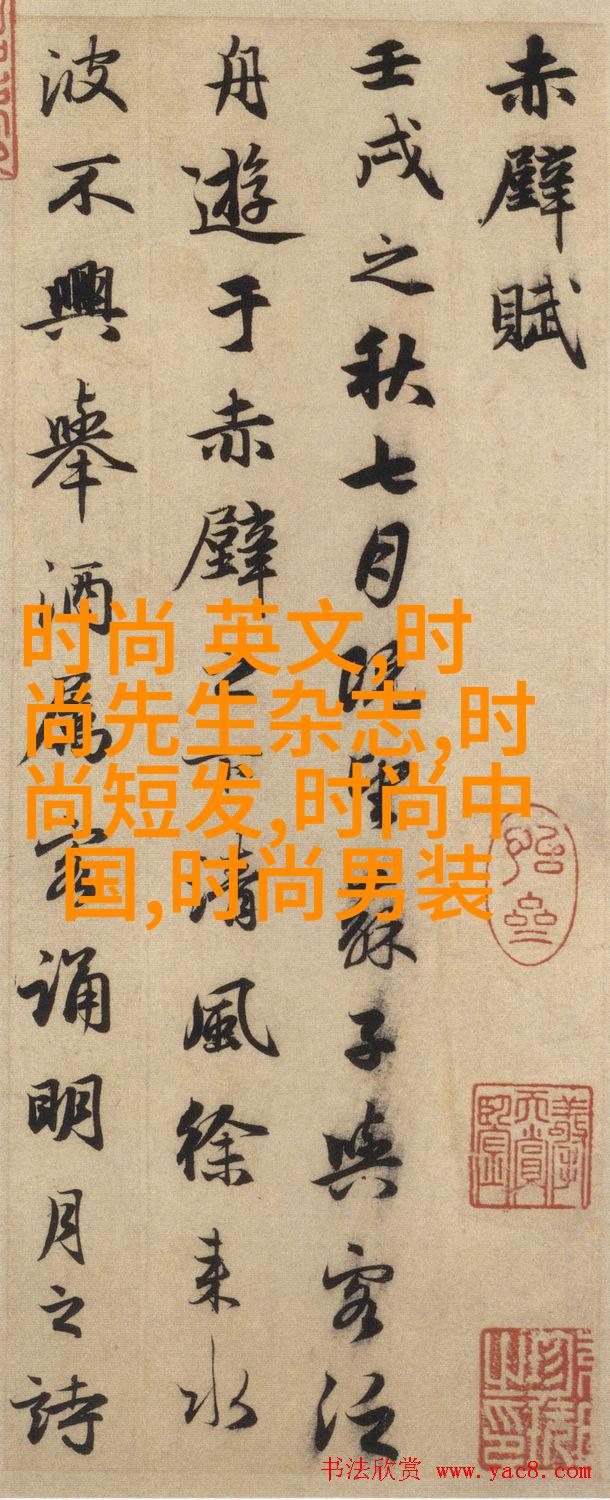 赤壁賦
壬戌之秋七月既望蘇子與客泛
舟遊于赤壁之下清風徐来水
波不興舉酒屬客誦明月之詩
时尚 英文,时
尚先生杂志,时
尚短发,时尚中
国,时尚男装
书法欣赏 www.yac8.com